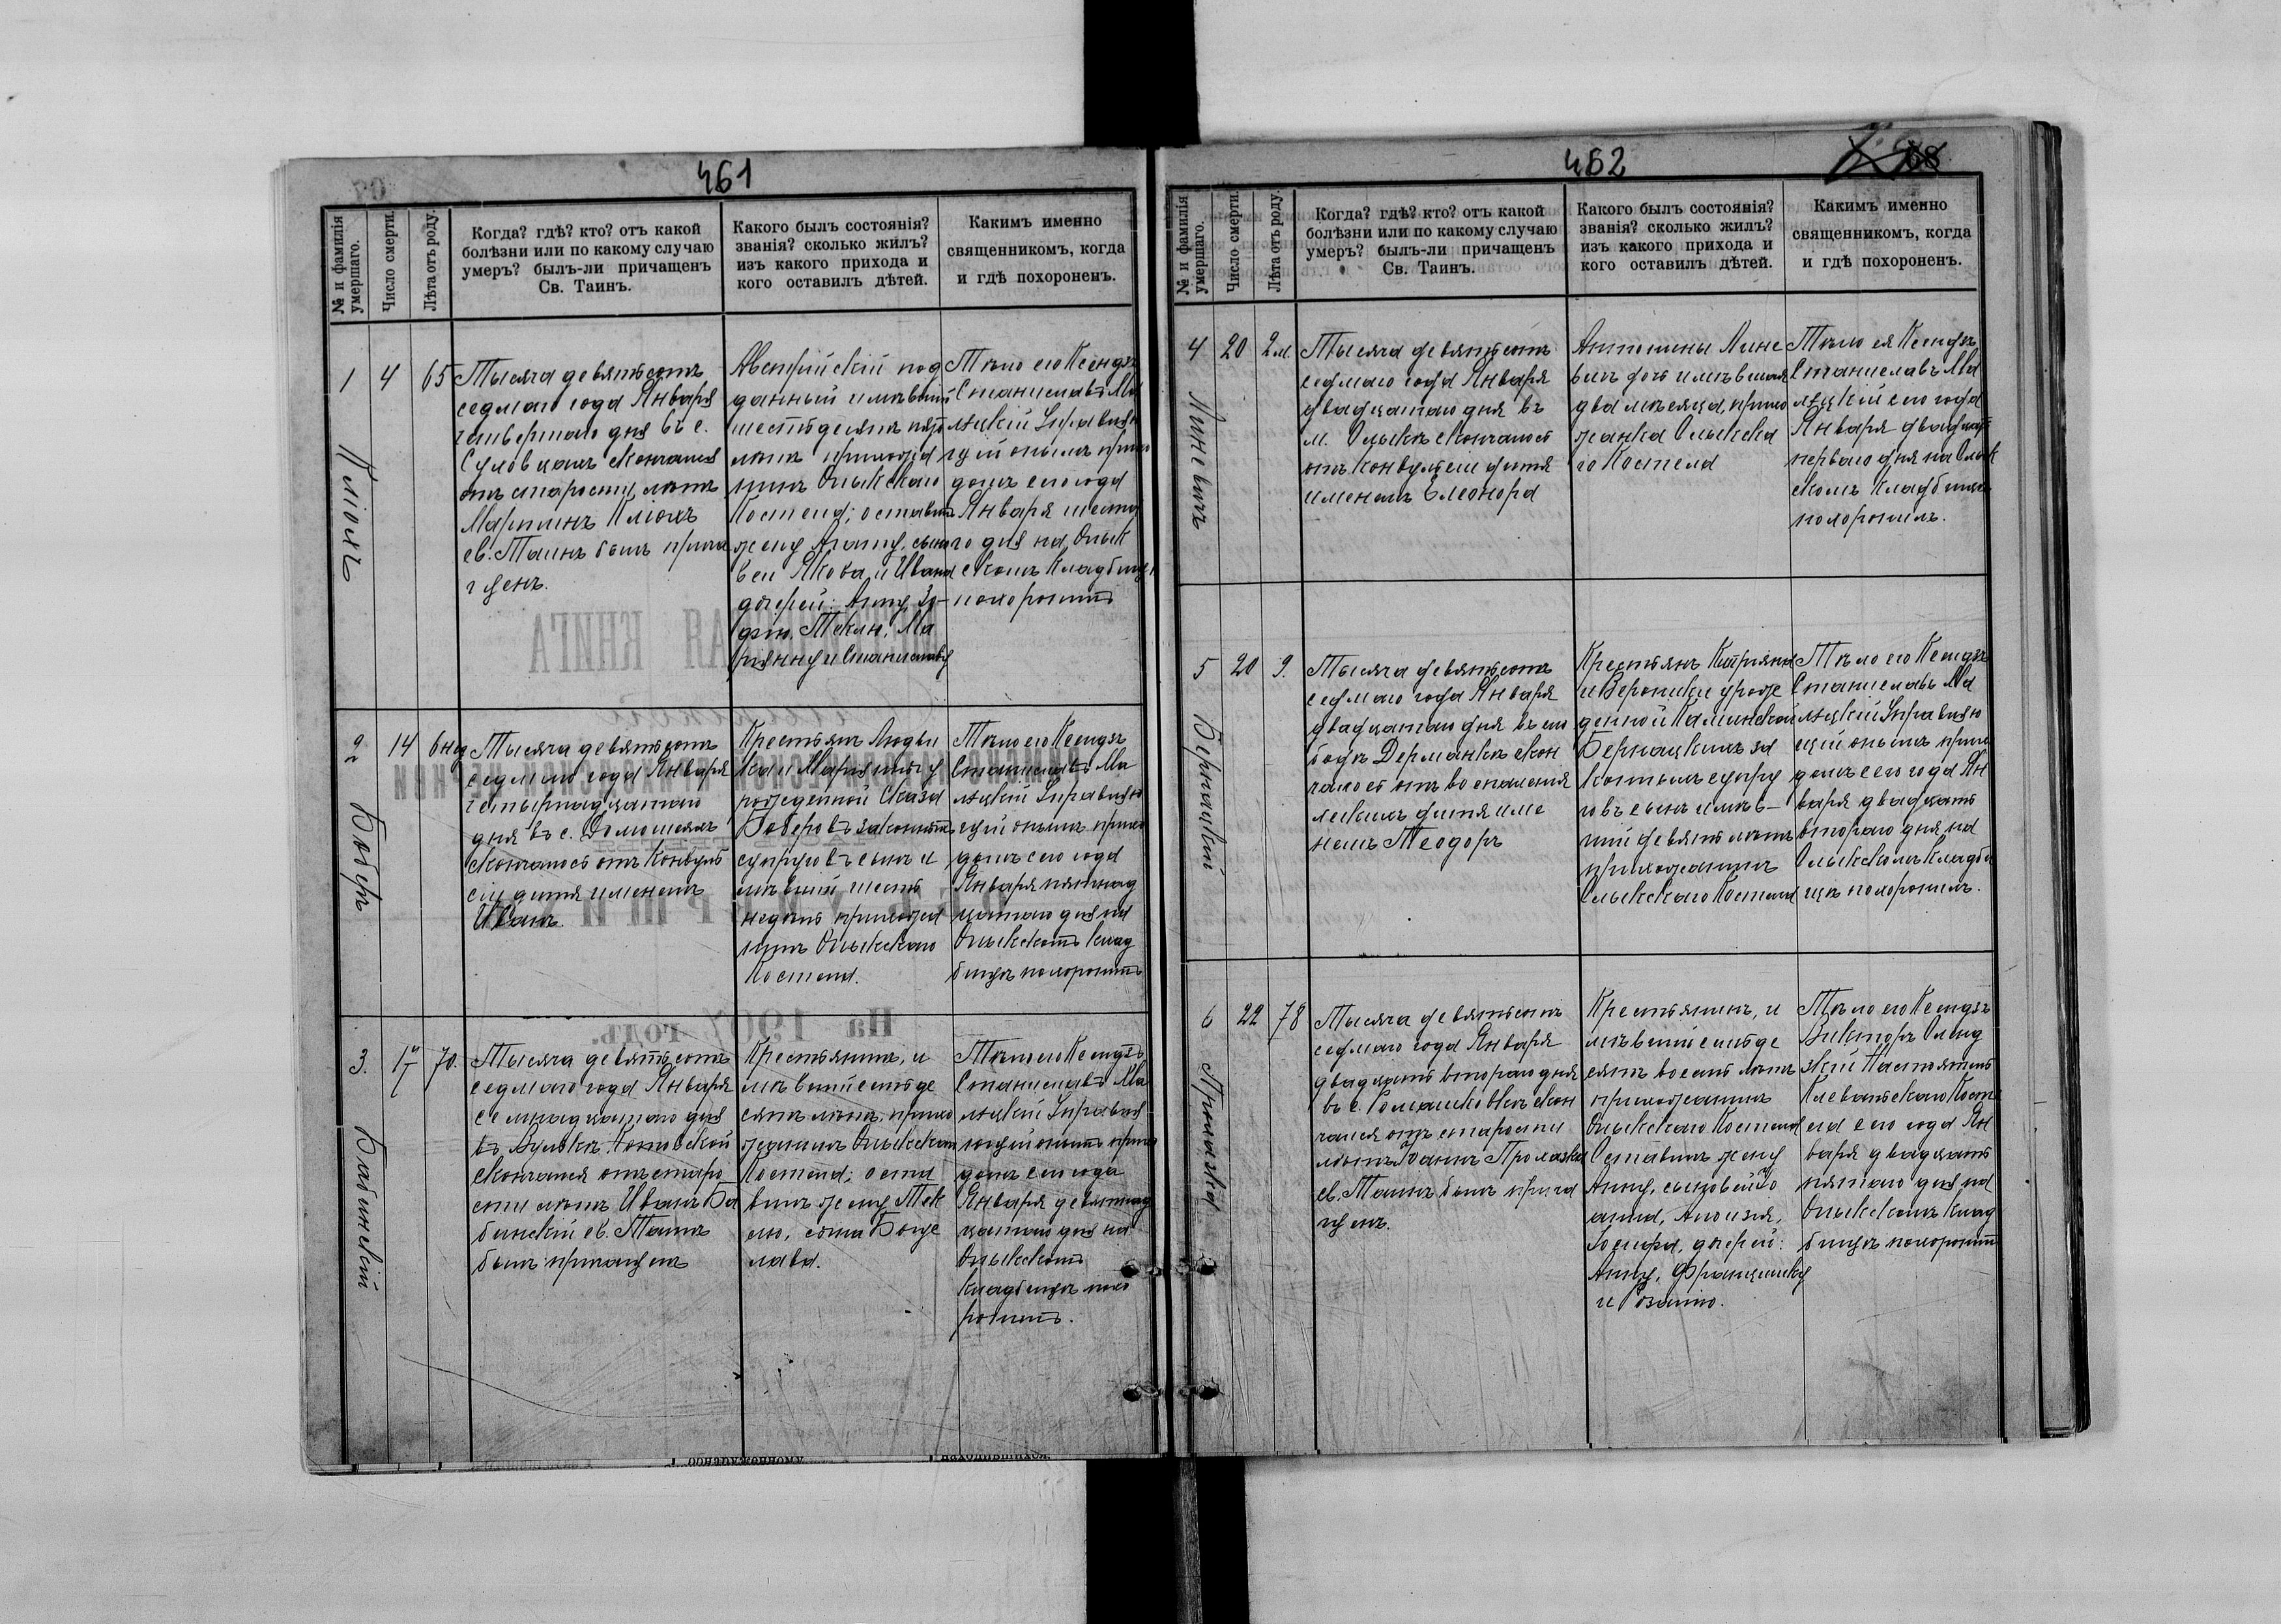 461
№ и фамилія умершаго.
Число смерти.
Лѣта отъ роду.
Когда? гдѣ? кто? отъ какой
болѣзни или по какому случаю
умеръ? былъ-ли причащенъ
Св. Таинъ.
Какого былъ состоянія?
званія? сколько жилъ?
изъ какого прихода и
кого оставилъ дѣтей.
Какимъ именно
священникомъ, когда
и гдѣ похороненъ.
1
4
65
Тысяча девятьсотъ
седмаго года Января
четвертаго дня въ с.
скончался
отъ старости лѣтъ
Мартинъ
св. Таинъ былъ прича
щенъ.
Австрійскій под
данный имѣвшій
шестьдесятъ пять
лѣтъ прихожа
нинъ Олыкскаго
Костела; оставилъ
жену Агату, сыно
вей Якова и Ивана
дочерей: Анну, Зо-
фію, Теклю, Ма
рянну и Станиславу
Тѣло его Ксендзъ
Станиславъ Ма
лѣцкій Управляю
щій онымъ прихо
домъ сего года
Января шеста
го дня на Олык
скомъ кладбищѣ
похоронилъ
2
Боберъ
14
6 нед
Тысяча девятьсотъ
седмаго года Января
четырнадцатаго
дня въ с.
скончалось отъ конвуль
сіи дитя именемъ
Иванъ.
Крестьянъ Людви
ка и Маріянны у
рожденной
Боберовъ законныхъ
супруговъ сынъ и
мѣвшій шесть
недѣль прихожа
нинъ Олыкскаго
Костела.
Тѣло его Ксендзъ
Станиславъ Ма
лѣцкій Управляю
щій онымъ прихо
домъ сего года
Января пятнад
цатаго дня на
Олыкскомъ клад
бищѣ похоронилъ
3.
Бабинскій
17
70.
Тысяча девятьсотъ
седмаго года Января
семнадцатаго дня
въ Вулькѣ Котовской
скончался отъ старо
сти лѣтъ Иванъ Ба
бинскій св. Таинъ
былъ причащенъ
Крестьянинъ, и
мѣвшій семьде
сятъ лѣтъ, прихо
жанинъ Олыкскаго
Костела; оста
вилъ жену Тек
лю, сына Боле
слава.
Тѣло его Ксендзъ
Станиславъ Ма
лѣцкій Управля
ющій онымъ прихо
домъ сего года
Января девятнад
цатаго дня на
Олыкскомъ
кладбищѣ похо
ронилъ.
462
68
№ и фамилія умершаго.
Число смерти.
Лѣта отъ роду.
Когда? гдѣ? кто? отъ какой
болѣзни или по какому случаю
умеръ? былъ-ли причащенъ
Св. Таинъ.
Какого былъ состоянія?
званія? сколько жилъ?
изъ какого прихода и
кого оставилъ дѣтей.
Какимъ именно
священникомъ, когда
и гдѣ похороненъ.
4
Линевичъ
20
2 м.
Тысяча девятьсотъ
седмаго года Января
двадцатаго дня въ
м. Олыкѣ скончалось
отъ конвульсіи дитя
именемъ Елеонора
Антонины Лине
вичъ дочь имѣвшая
два мѣсяца, прихо
жанка Олыкска
го Костела
Тѣло ея Ксендзъ
Станиславъ Ма
лѣцкій сего года
Января двадцать
перваго дня на Олык
скомъ кладбищѣ
похоронилъ.
5
Бернацкій
20
9.
Тысяча девятьсотъ
седмаго года Января
двадцатаго дня въ сло
бодѣ Дерманкѣ скон
чалось отъ воспаленія
легкихъ дитя име
немъ Теодоръ
Крестьянъ Кипріяна
и Вероники урож
денной Каминской
Бернацкихъ за
конныхъ супру
говъ сынъ имѣв-
шій девять лѣтъ
прихожанинъ
Олыкскаго Костела
Тѣло его Ксендзъ
Станиславъ Ма
лѣцкій Управляю
щій онымъ прихо
домъ сего года Ян
варя двадцать
втораго дня на
Олыкскомъ кладби
щѣ похоронилъ.
6
Промазка
22
78
Тысяча девятьсотъ
седмаго года Января
двадцать втораго дня
въ с. Ромашковкѣ скон
чался отъ старости
лѣтъ Іоаннъ
св. Таинъ былъ прича
щенъ.
Крестьянинъ, и
мѣвшій семьде
сятъ восемь лѣтъ
прихожанинъ
Олыкскаго Костела
Оставилъ жену
Анну, сыновей: Іо
анна, Алоизія,
Іосифа, дочерей:
Анну, Францишку
и Розалію.
Тѣло его Ксендзъ
Викторъ
Настоятель
Клеванскаго Косте
ла сего года Ян
варя двадцать
пятаго дня на
Олыкскомъ клад
бищѣ похоронилъ